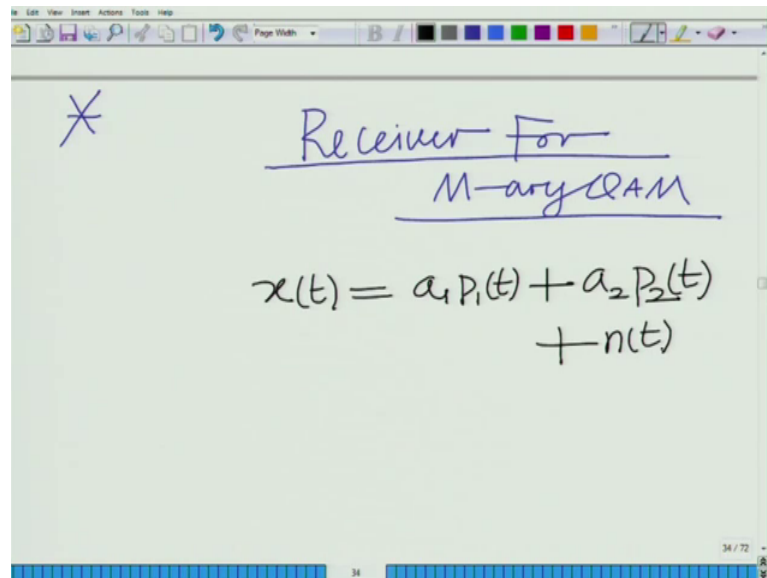 Edit View Insert Actions Tools Help
Page Width
B I
Receiver For
M-ary QAM
x(t) = a₁p₁(t) + a₂p₂(t)
+ n(t)
34 / 72
34